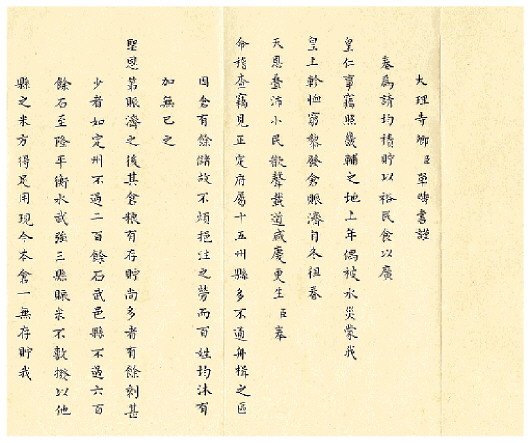 大理寺卿臣單疇書謹
奏為請均積貯以裕民食以廣
皇仁事竊照畿輔之地上年偶被水災蒙我
皇上軫恤窮黎發倉賑濟自冬徂春
天恩疊沛小民歡聲載道咸慶更生臣奉
命稽查竊見正定府屬十五州縣多不通舟楫之區
因倉有餘儲故不煩挹注之勞而百姓均沐有
加無已之
聖恩第賑濟之後其倉糧有存貯尚多者有餘剩甚
少者如定州不過二百餘石武邑縣不過六百
餘石至隆平衡水武強三縣賑米不敷撥以他
縣之米方得足用現今本倉一無存貯我